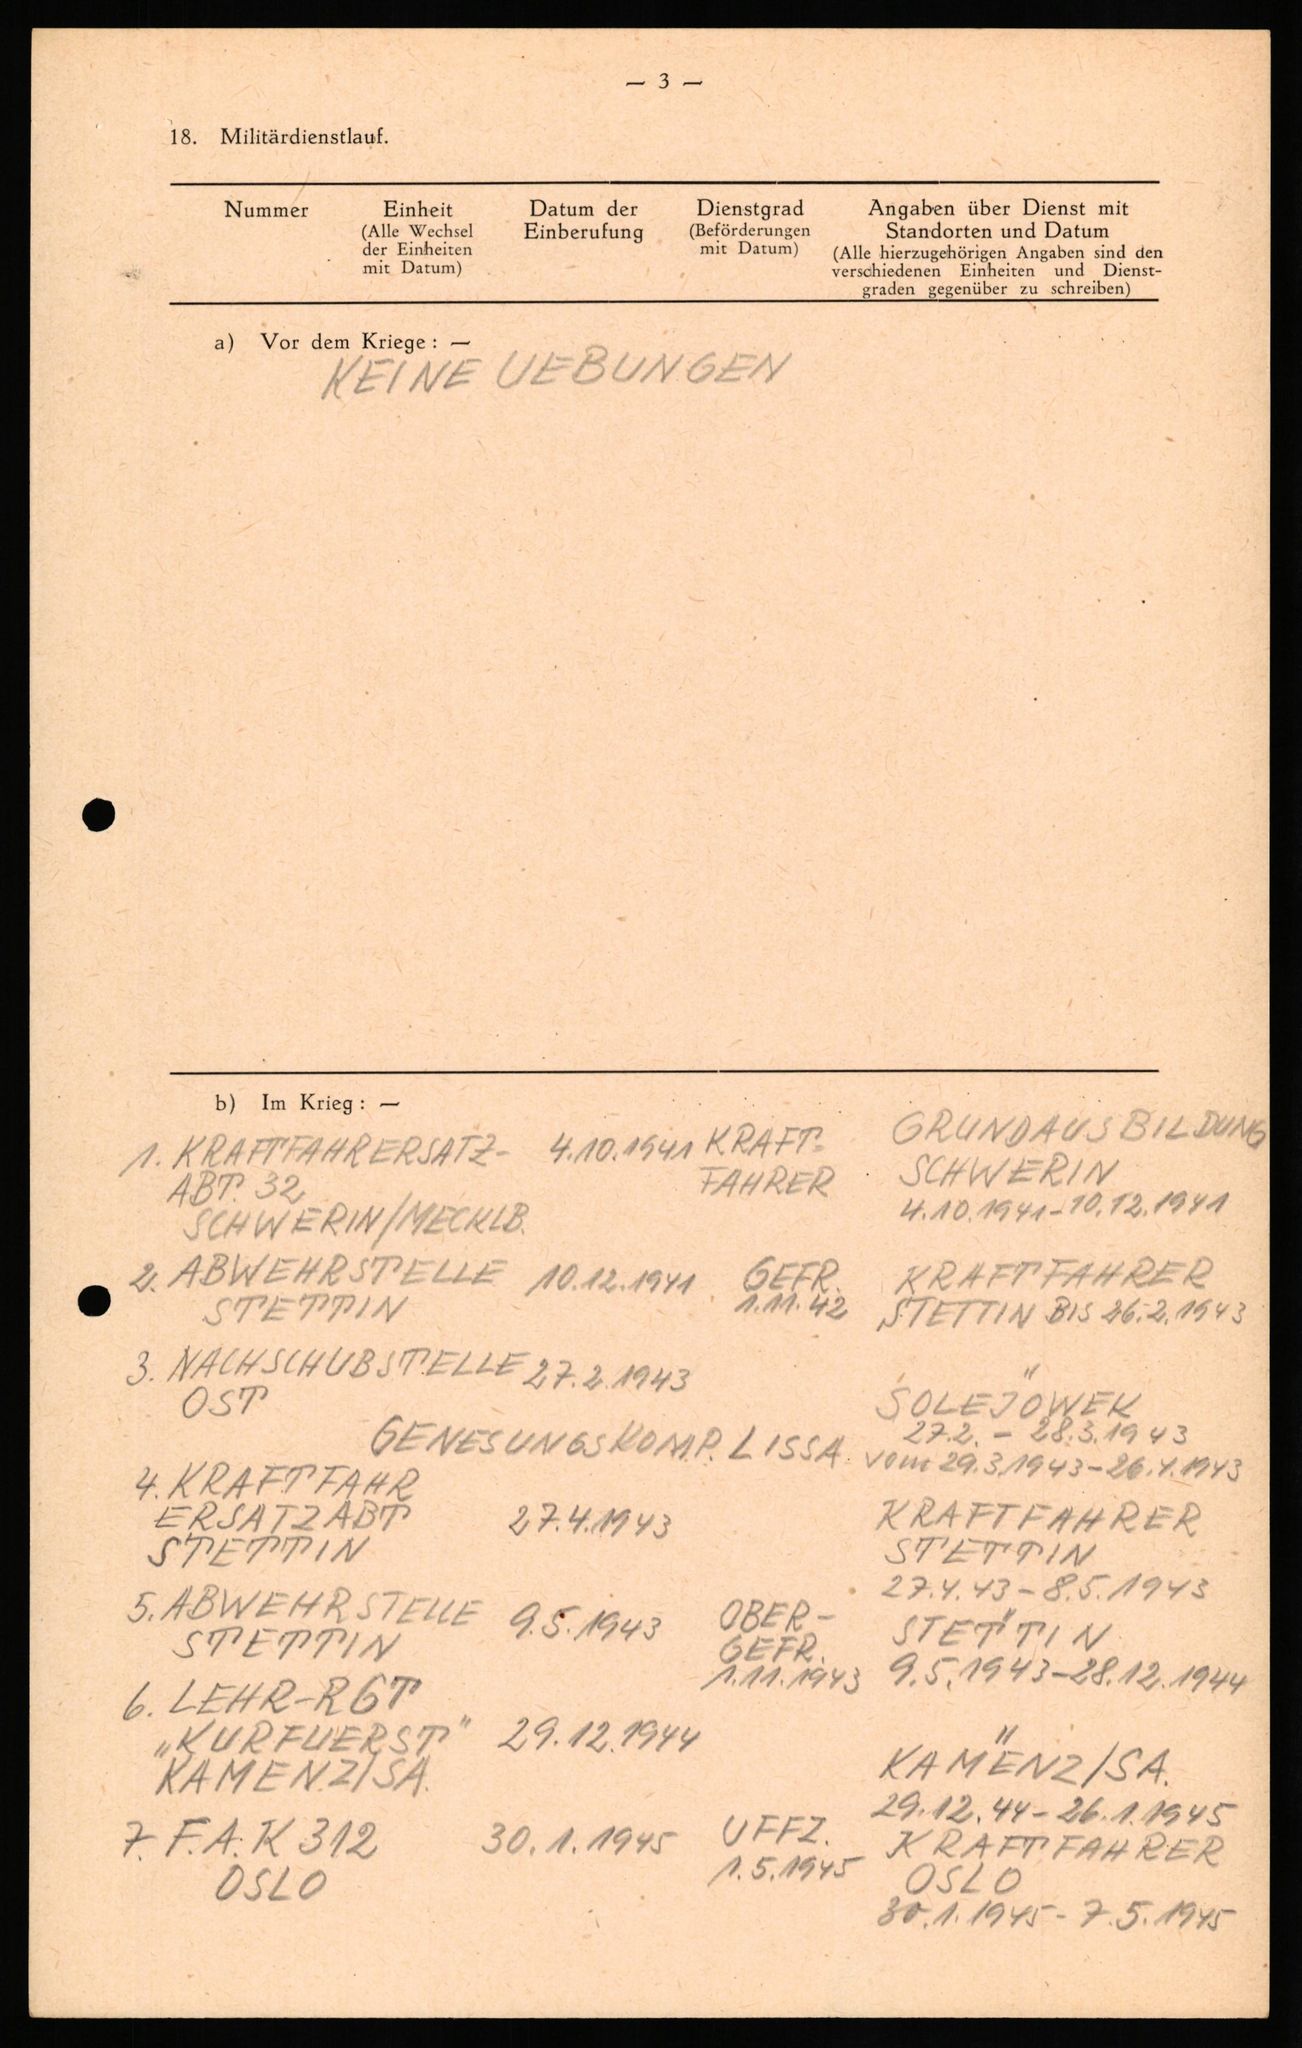 — 3 —
18. Militärdienstlauf.
Nummer
Einheit
(Alle Wechsel
der Einheiten
mit Datum)
Datum der
Einberufung
Dienstgrad
(Beförderungen
mit Datum)
Angaben über Dienst mit
Standorten und Datum
(Alle hierzugehörigen Angaben sind den
verschiedenen Einheiten und Dienst-
graden gegenüber zu schreiben)
a) Vor dem Kriege: —
KEINE UEBUNGEN
b) Im Krieg: —
1. KRAFTFAHRERSATZ- 4.10.1941 KRAFT- GRUNDAUSBILDUNG
ABT. 32 FAHRER SCHWERIN
SCHWERIN/MECKLB. 4.10.1941-10.12.1941
2. ABWEHRSTELLE 10.12.1941 GEFR. KRAFTFAHRER
STETTIN 1.11.42 STETTIN BIS 26.2.1943
3. NACHSCHUBSTELLE 27.2.1943 "
OST SOLEJOWEK
27.2. - 28.3.1943
GENESUNGSKOMP. LISSA vom 29.3.1943-26.4.1943
4. KRAFTFAHR
ERSATZABT 27.4.1943 KRAFTFAHRER
STETTIN STETTIN
27.4.43-8.5.1943
5. ABWEHRSTELLE 9.5.1943 OBER- "
STETTIN GEFR. STETTIN
1.11.1943 9.5.1943-28.12.1944
6. LEHR-RGT
„KURFUERST" 29.12.1944 "
KAMENZ/SA. KAMENZ/SA.
29.12.44-26.1.1945
7. F.A.K 312 30.1.1945 UFFZ. KRAFTFAHRER
OSLO 1.5.1945 OSLO
30.1.1945-7.5.1945